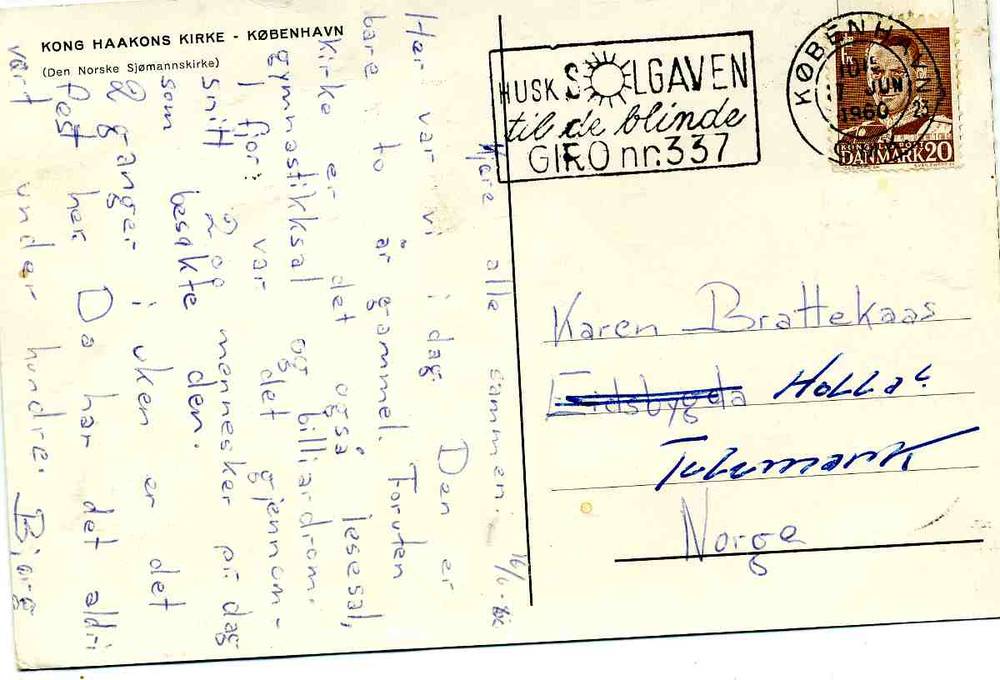 KONG HAAKONS KIRKE - KØBENHAVN
(Den Norske Sjømannskirke)
Kjære alle sammen. 16/6-60
Her var vi i dag. Den er
bare to år gammel. Foruten
kirke er det også lesesal,
gymnastikksal og billiardrom.
I fjor var det gjennom-
snitt 200 mennesker pr. dag
som besøkte den.
2 ganger i uken er det
fest her. Da har det aldri
vært under hundre. Bjørg
HUSK SOLGAVEN
til de blinde
GIRO nr. 337
KØBENHAVN
JUN
1960
DANMARK 20
Karen Brattekaas
Eidsbygda Holla
Telemark
Norge